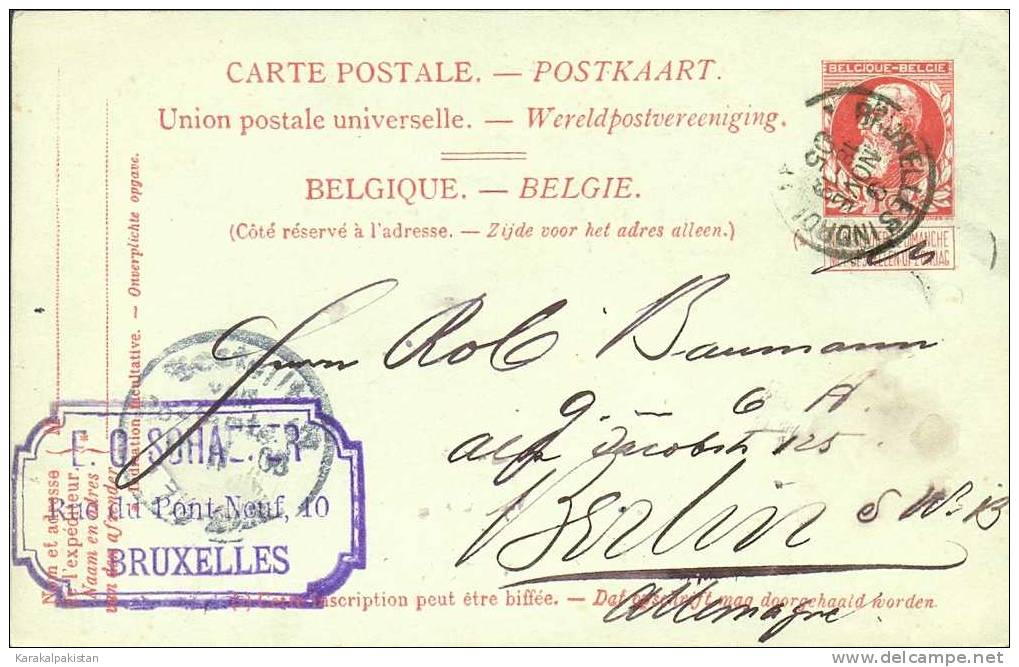 CARTE POSTALE. — POSTKAART.
Union postale universelle. — Wereldpostvereeniging.
BELGIQUE. — BELGIE.
(Côté réservé à l'adresse. — Zijde voor het adres alleen.)
BELGIQUE-BELGIE
BRUXELLES
NOV
05
DIMANCHE
Herrn Rob. Baumann
125
Berlin
Allemagne
Nom et adresse
de l'expéditeur.
Naam en adres
van den afzender
Indication facultative. — Onverplichte opgave.
Rue du Pont-Neuf, 10
BRUXELLES
inscription peut être biffée. — Dat opschrift mag doorgehaald worden.
Karakalpakistan
delcampe.net